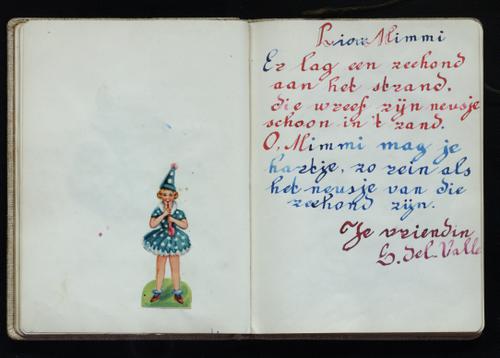 Lieve Mimmi
Er lag een zeehond
aan het strand.
die wreef zijn neusje
schoon in 't zand.
O, Mimmi mag je
hartje, zo rein als
het neusje van die
zeehond zijn.
Je vriendin
S. del Valle